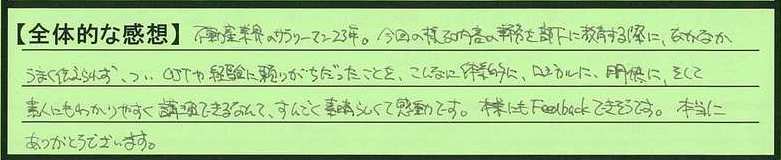 【全体的な感想】不動産業界のサラリーマン23年。今回の様な内容の事務を部下に教育する際に、なかなか
うまく伝えられず、つい、OJTや経験に頼りがちだったことを、こんなに体系的に、ロジカルに、明快に、そして
素人にもわかりやすく講演できるなんて、すんごく素晴らしくて感動です。本業にもFeedbackできそうです。本当に
ありがとうございます。